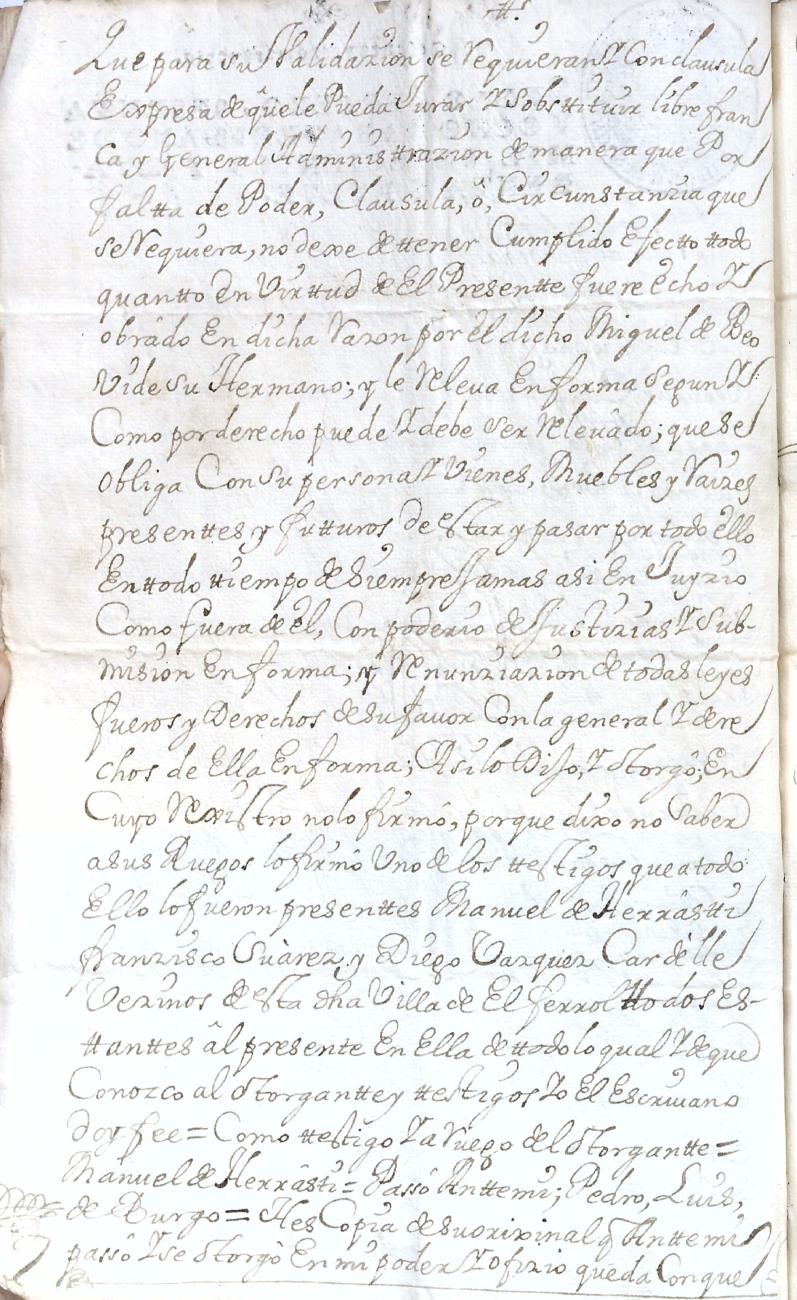 Que para su Validazion se Requieran Y Con clausula
Expresa de qûele Pueda Jurar Y Sobsttituir libre fran
ca y General Administrazion de manera que Por
faltta de Poder, Clausula, ô, Circunstanzia que
se Requiera, no dexe de ttener Cumplido Efectto ttodo
quantto En Virttud de El Presentte fuere êcho Y
obrâdo En dicha Razon por el dicho Miguel de Beo
Vide su Hermano; y le Releva En forma segun Y
Como por derecho puede Y debe ser Relevâdo; que se
obliga Con su persona Y Vienes, Muebles y Raizes
presenttes y futturos de estar y pasar por todo êllo
En ttodo ttiempo de siempre Jamas asi En Juyzio
Como fuera de êl, Con poderio de Justizias Y Sub-
mision En forma; y Renunziazion de todas leyes
fueros y Derechos de su favor Con la general Y dere
chos de Ella En forma; Asi lo Dijo, Y Otorgô; En
Cuyo Rexistro no lo firmô, porque dixo no Saber
a sus Ruegos lo firmô Uno de los ttestigos que a todo
Ello lo fueron presenttes Manuel de Herrâstti
franzisco Suàrez y Diego Vazquez Cardelle
Vezinos de esta dha Villa de El ferrol ttodos Es-
ttanttes âl presente En Ella de ttodo lo qual Y de que
Conozco al Otorgantte y ttestigos Yo El Escrivano
doy fee = Como ttestigo Y a Ruego del Otorgantte =
Manuel de Herrâsti = Passô Antte mi; Pedro, Luis,
de Burgo = Hes Copia de su orixinal q̃ Antte mi
passô Y se Otorgô En mi poder Y ofizio queda Con que